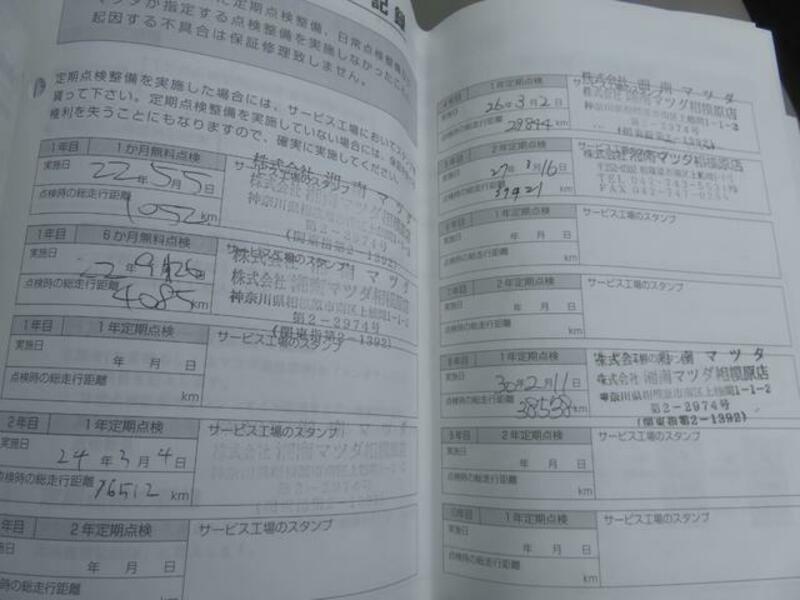 記録
に定期点検整備、日常点検整備
マツダが指定する点検整備を実施しなかったこ
起因する不具合は保証修理致しません。
定期点検整備を実施した場合には、サービス工場においてスタンプを
貰って下さい。定期点検整備を実施していない場合には、保証
権利を失うことにもなりますので、確実に実施してください。
1年目 1か月無料点検 サービス工場のスタンプ
実施日 22年5月5日
点検時の総走行距離 1052km
株式会社 湘南マツダ
株式会社 湘南マツダ相模原店
神奈川県相模原市南区上鶴間1-1-2
第2-2974号
(関東指第2-1392)
1年目 6か月無料点検 サービス工場のスタンプ
実施日 22年9月26日
点検時の総走行距離 4085km
株式会社 湘南マツダ
株式会社 湘南マツダ相模原店
神奈川県相模原市南区上鶴間1-1-2
第2-2974号
(関東指第2-1392)
1年目 1年定期点検 サービス工場のスタンプ
実施日 年 月 日
点検時の総走行距離 km
2年目 1年定期点検 サービス工場のスタンプ
24年3月4日
点検時の総走行距離 16512km
年目 2年定期点検 サービス工場のスタンプ
実施日 年 月 日
点検時の総走行距離
年目 1年定期点検
実施日 26年3月2日
点検時の総走行距離 29894km
株式会社 湘南マツダ
株式会社 湘南マツダ相模原店
神奈川県相模原市南区上鶴間1-1-2
第2-2974号
(関東指第2-1392)
年目 2年定期点検
実施日 27年3月16日
点検時の総走行距離 39421km
株式会社 湘南マツダ相模原店
年目 1年定期点検 サービス工場のスタンプ
実施日 年 月 日
点検時の総走行距離 km
年目 2年定期点検 サービス工場のスタンプ
実施日 年 月 日
点検時の総走行距離 km
年目 1年定期点検
実施日 30年2月11日
点検時の総走行距離 38538km
株式会社 湘南マツダ
株式会社 湘南マツダ相模原店
神奈川県相模原市南区上鶴間1-1-2
第2-2974号
(関東指第2-1392)
年目 2年定期点検 サービス工場のスタンプ
実施日 年 月 日
点検時の総走行距離 km
年目 1年定期点検 サービス工場のスタンプ
実施日 年 月 日
点検時の総走行距離 km